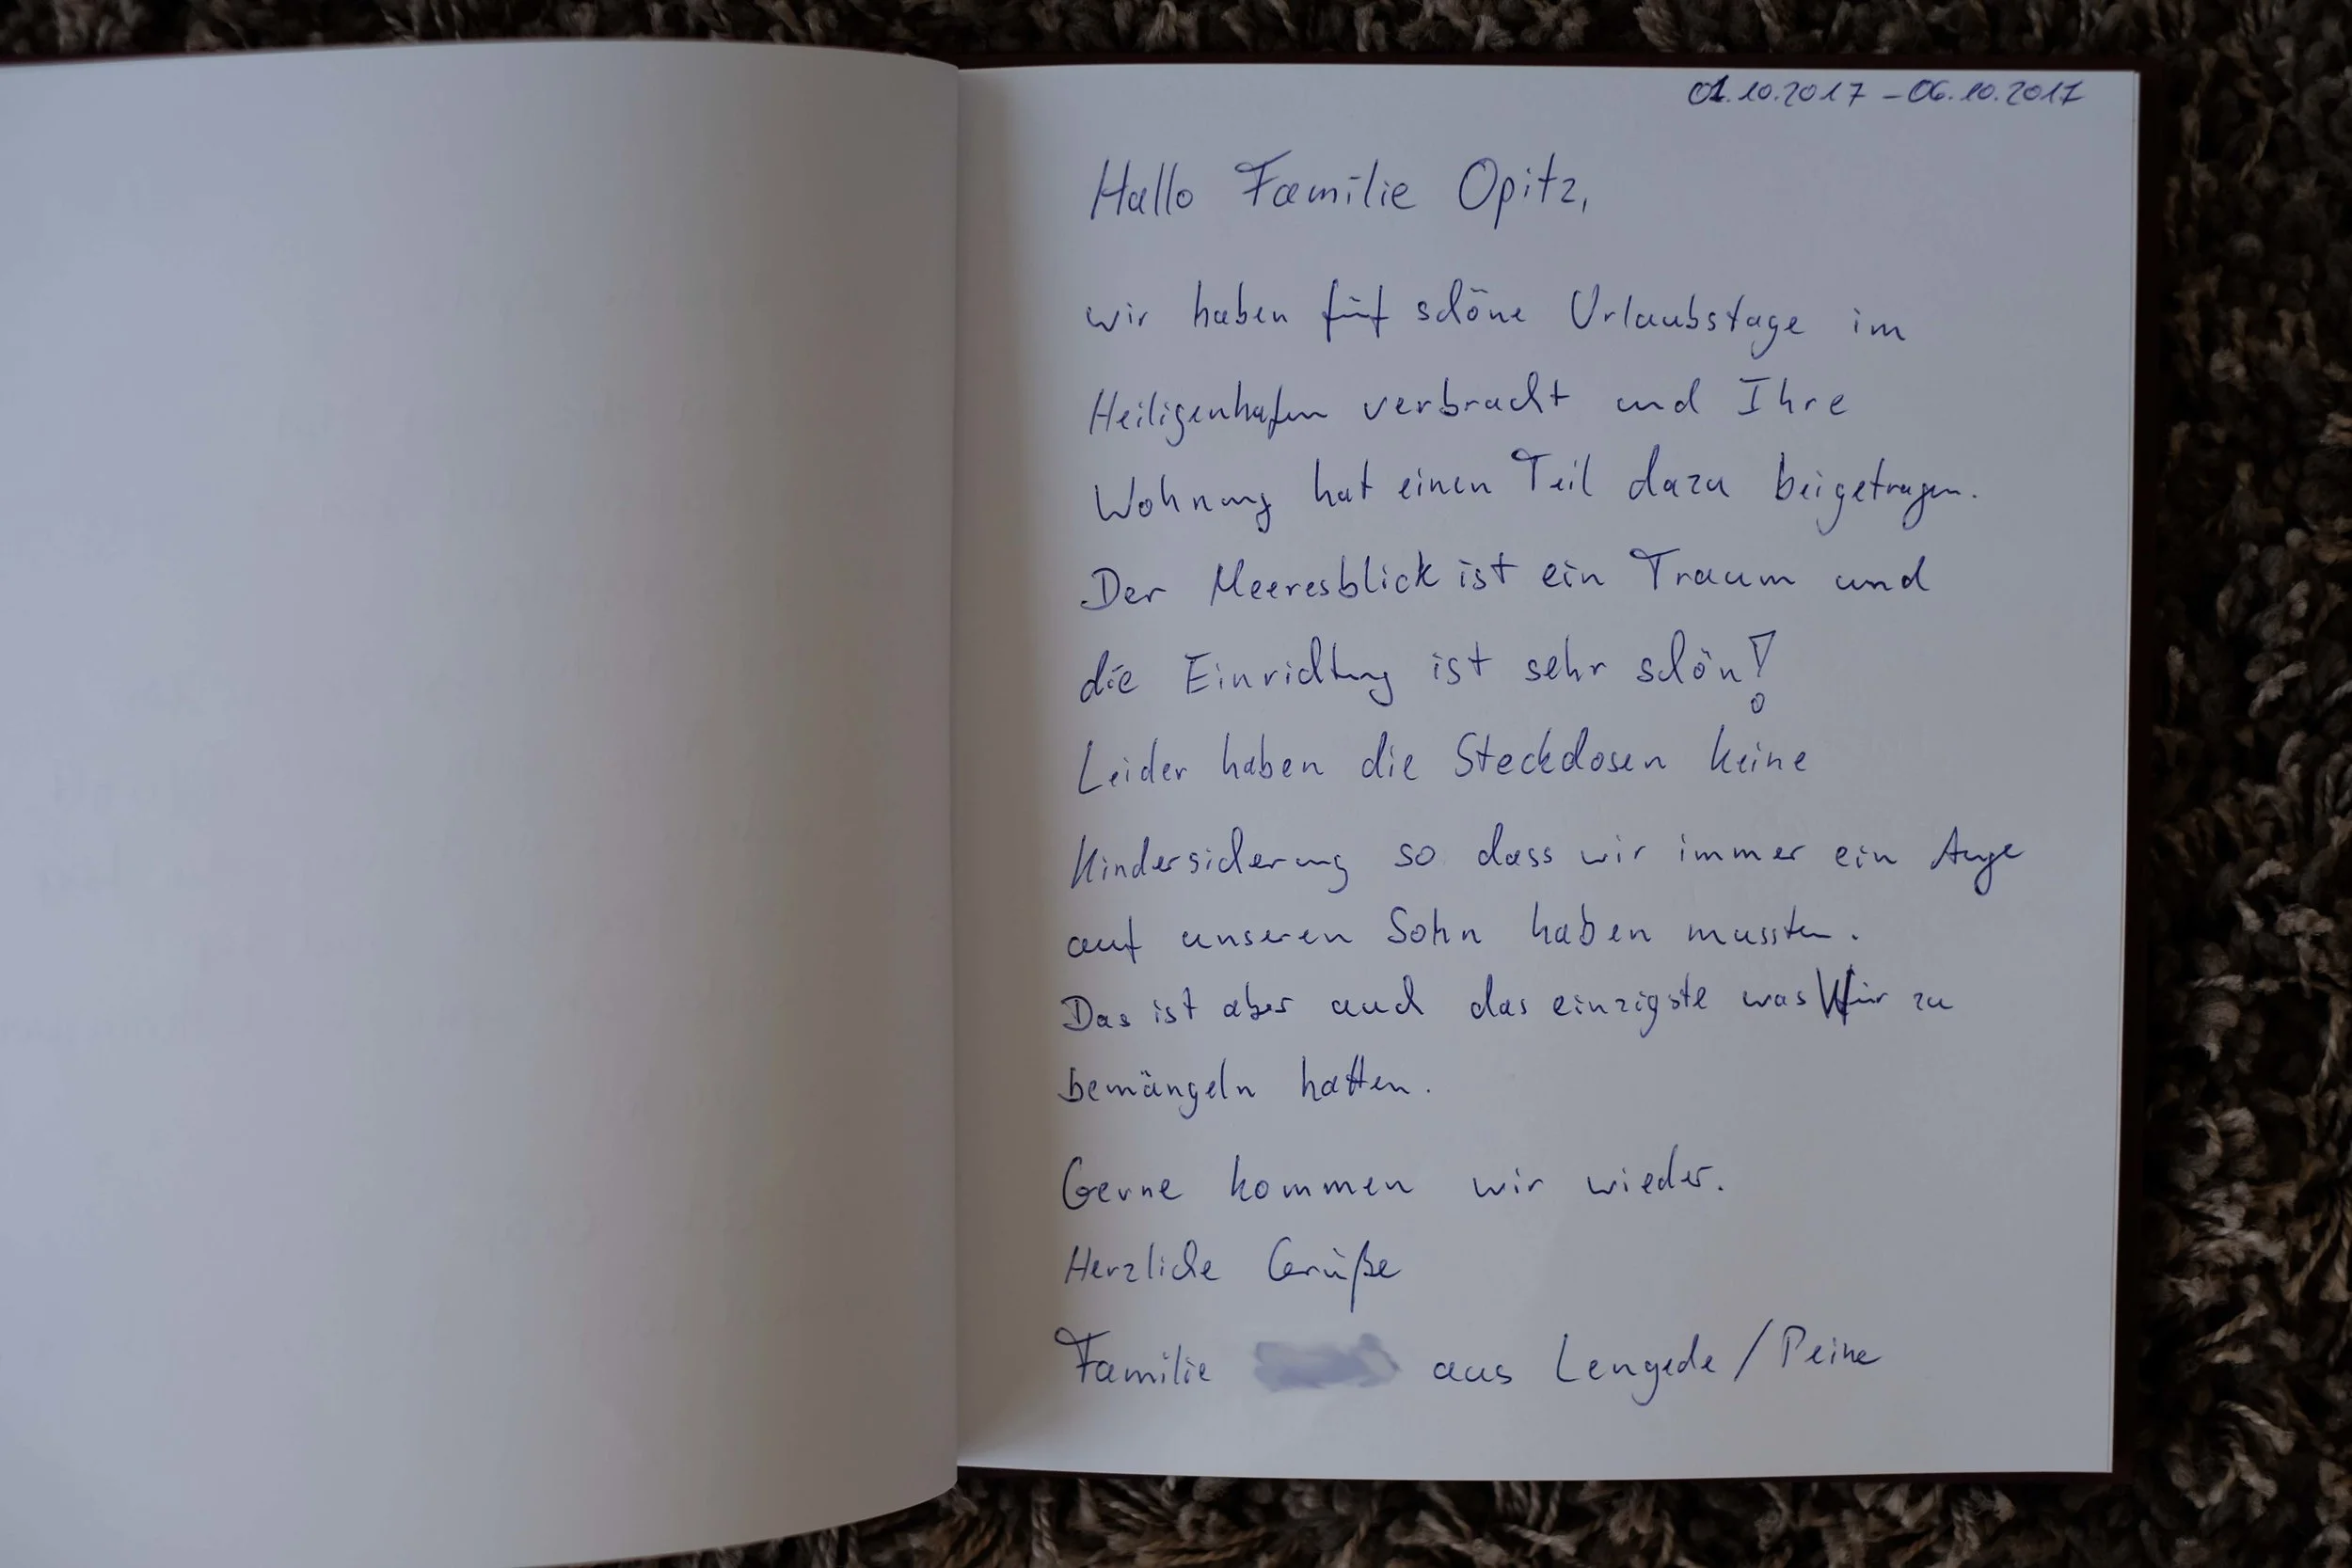 01.10.2017 - 06.10.2017
Hallo Familie Opitz,
wir haben fünf schöne Urlaubstage im
Heiligenhafen verbracht und Ihre
Wohnung hat einen Teil dazu beigetragen.
Der Meeresblick ist ein Traum und
die Einrichtung ist sehr schön!
Leider haben die Steckdosen keine
Kindersicherung so dass wir immer ein Auge
auf unseren Sohn haben mussten.
Das ist aber auch das einzigste was Wir zu
bemängeln hatten.
Gerne kommen wir wieder.
Herzliche Grüße
Familie aus Lengede / Peine